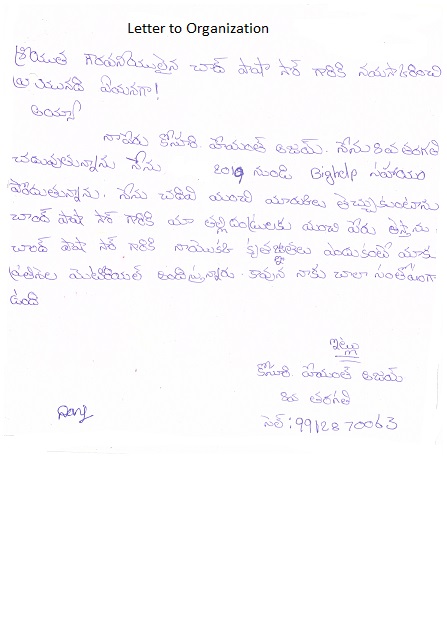 Letter to Organization
శ్రీయుత గౌరవనీయులైన చాంద్ పాషా సార్ గారికి నమస్కరించి
వ్రాయునది ఏమనగా!
అయ్యా
నాపేరు కోసూరి. హేమంత్ అజయ్. నేను 8వ తరగతి
చదువుతున్నాను నేను 2019 నుండి Bighelp సహాయం
పొందుతున్నాను. నేను చదివి మంచి మార్కులు తెచ్చుకుంటాను
చాంద్ పాషా సార్ గారికి మా తల్లిదండ్రులకు మంచి పేరు తెస్తాను.
చాంద్ పాషా సార్ గారికి నాయొక్క కృతజ్ఞతలు ఎందుకంటే మాకు
ప్రతినెల మెటీరియల్ అందిస్తున్నారు. కావున నాకు చాలా సంతోషంగా
ఉంది
ఇట్లు
కోసూరి. హేమంత్ అజయ్
8వ తరగతి
సెల్ : 9912870063